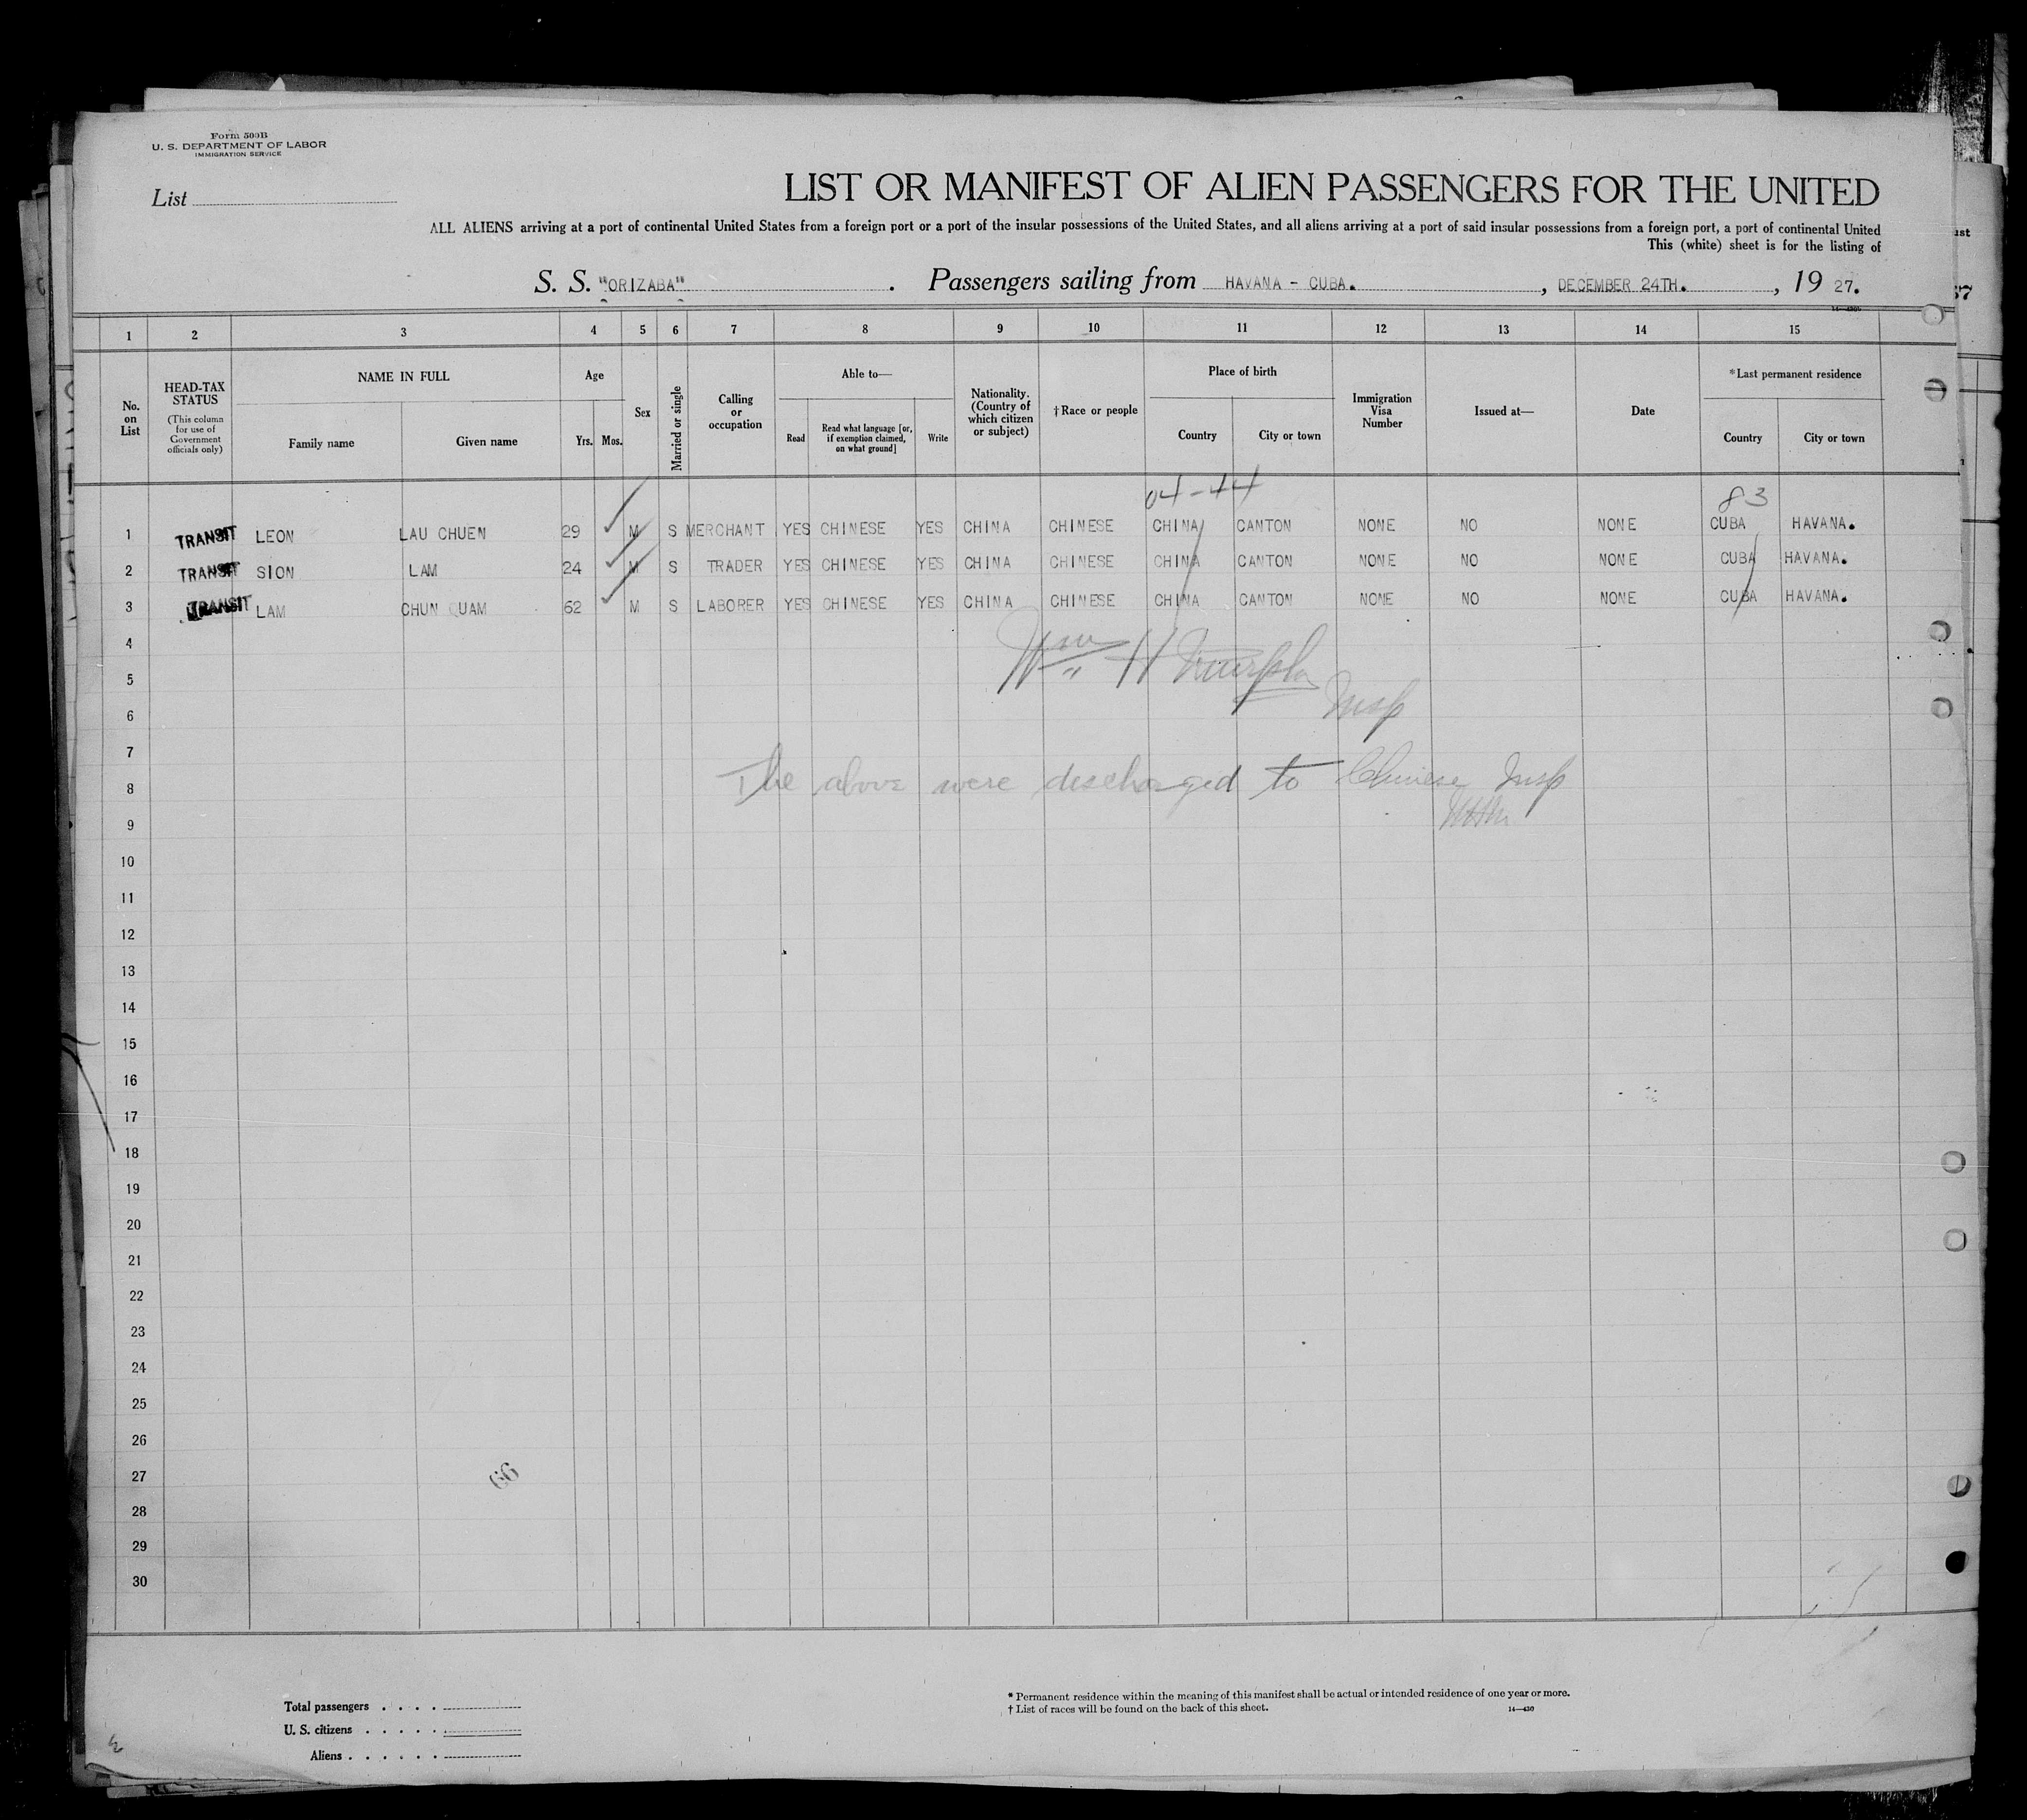 Form 500B
U. S. DEPARTMENT OF LABOR
IMMIGRATION SERVICE
List
LIST OR MANIFEST OF ALIEN PASSENGERS FOR THE UNITED
ALL ALIENS arriving at a port of continental United States from a foreign port or a port of the insular possessions of the United States, and all aliens arriving at a port of said insular possessions from a foreign port, a port of continental United
This (white) sheet is for the listing of
S. S. "ORIZABA". Passengers sailing from HAVANA - CUBA., DECEMBER 24TH., 19 27.
1 2 3 4 5 6 7 8 9 10 11 12 13 14 15
No. on List
HEAD-TAX STATUS
(This column for use of Government officials only)
NAME IN FULL
Family name
Given name
Age
Yrs.
Mos.
Sex
Married or single
Calling or occupation
Able to—
Read
Read what language [or, if exemption claimed, on what ground]
Write
Nationality. (Country of which citizen or subject)
†Race or people
Place of birth
Country
City or town
Immigration Visa Number
Issued at—
Date
*Last permanent residence
Country
City or town
04-44 83
1 TRANSIT LEON LAU CHUEN 29 M S MERCHANT YES CHINESE YES CHINA CHINESE CHINA CANTON NONE NO NONE CUBA HAVANA.
2 TRANSIT SION LAM 24 M S TRADER YES CHINESE YES CHINA CHINESE CHINA CANTON NONE NO NONE CUBA HAVANA.
3 TRANSIT LAM CHUN QUAM 62 M S LABORER YES CHINESE YES CHINA CHINESE CHINA CANTON NONE NO NONE CUBA HAVANA.
4
Wm H Murphy
5
Insp
6
7
8 The above were descharged to Chinese Insp
9 WHM
10
11
12
13
14
15
16
17
18
19
20
21
22
23
24
25
26
27
66
28
29
30
Total passengers
U. S. citizens
Aliens
* Permanent residence within the meaning of this manifest shall be actual or intended residence of one year or more.
† List of races will be found on the back of this sheet.
14—430